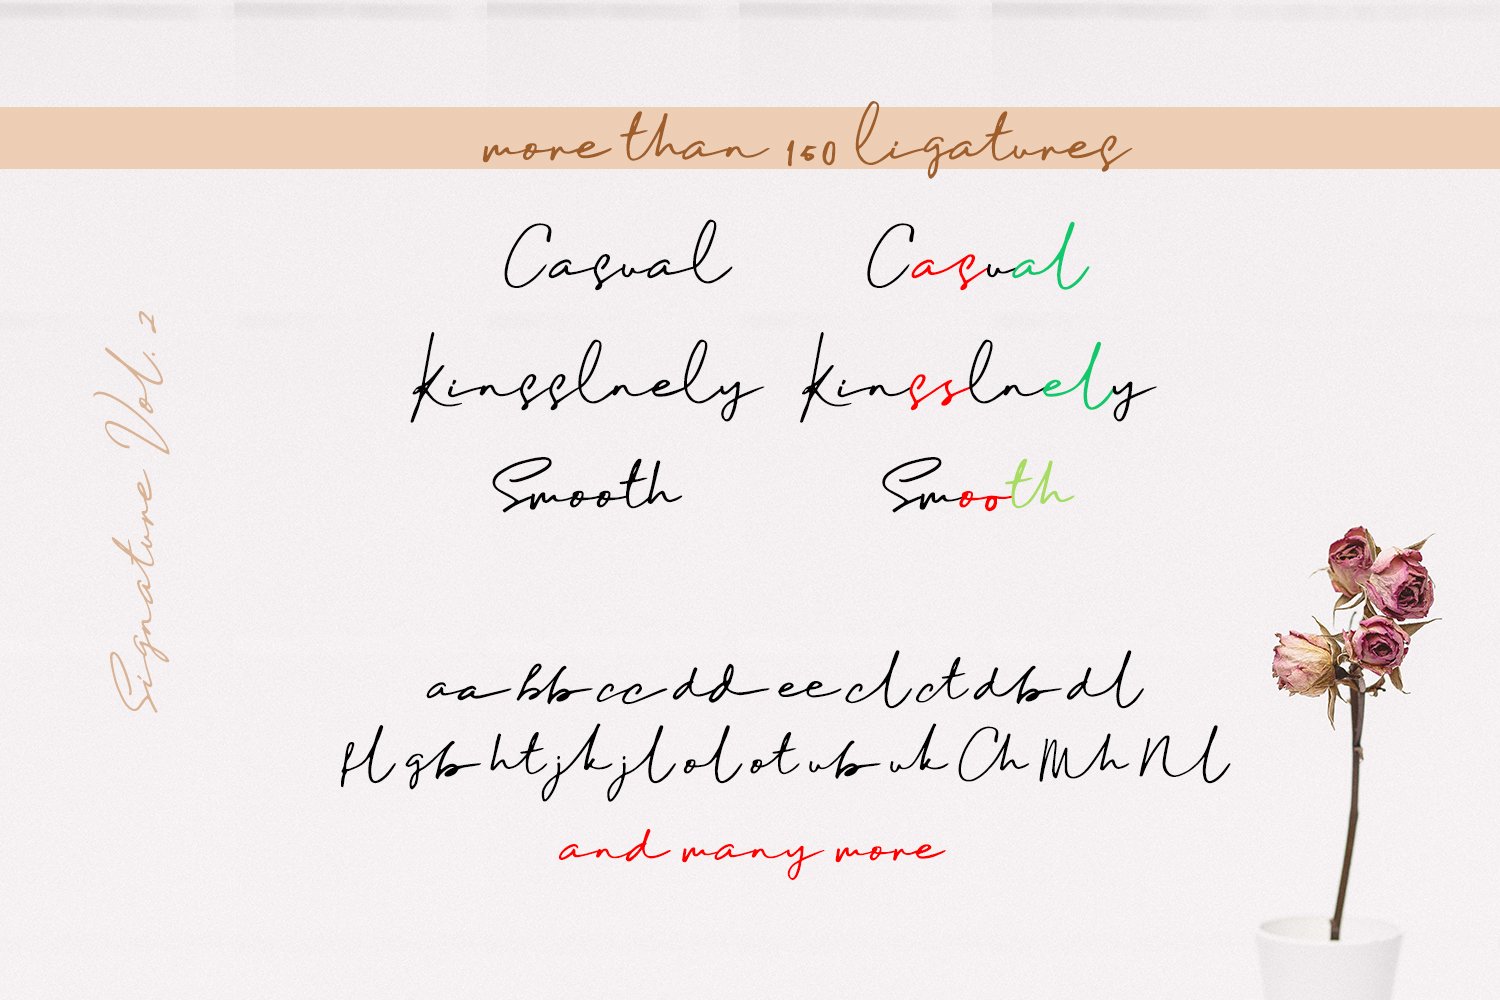 more than 150 ligatures
Casual Casual
Kinsslnely Kinsslnely
Smooth Smooth
Signature Vol. 2
aa bb cc dd ee cl ct db dl
fl gb ht jk jl ol ot ub uk Ch Mh Nl
and many more